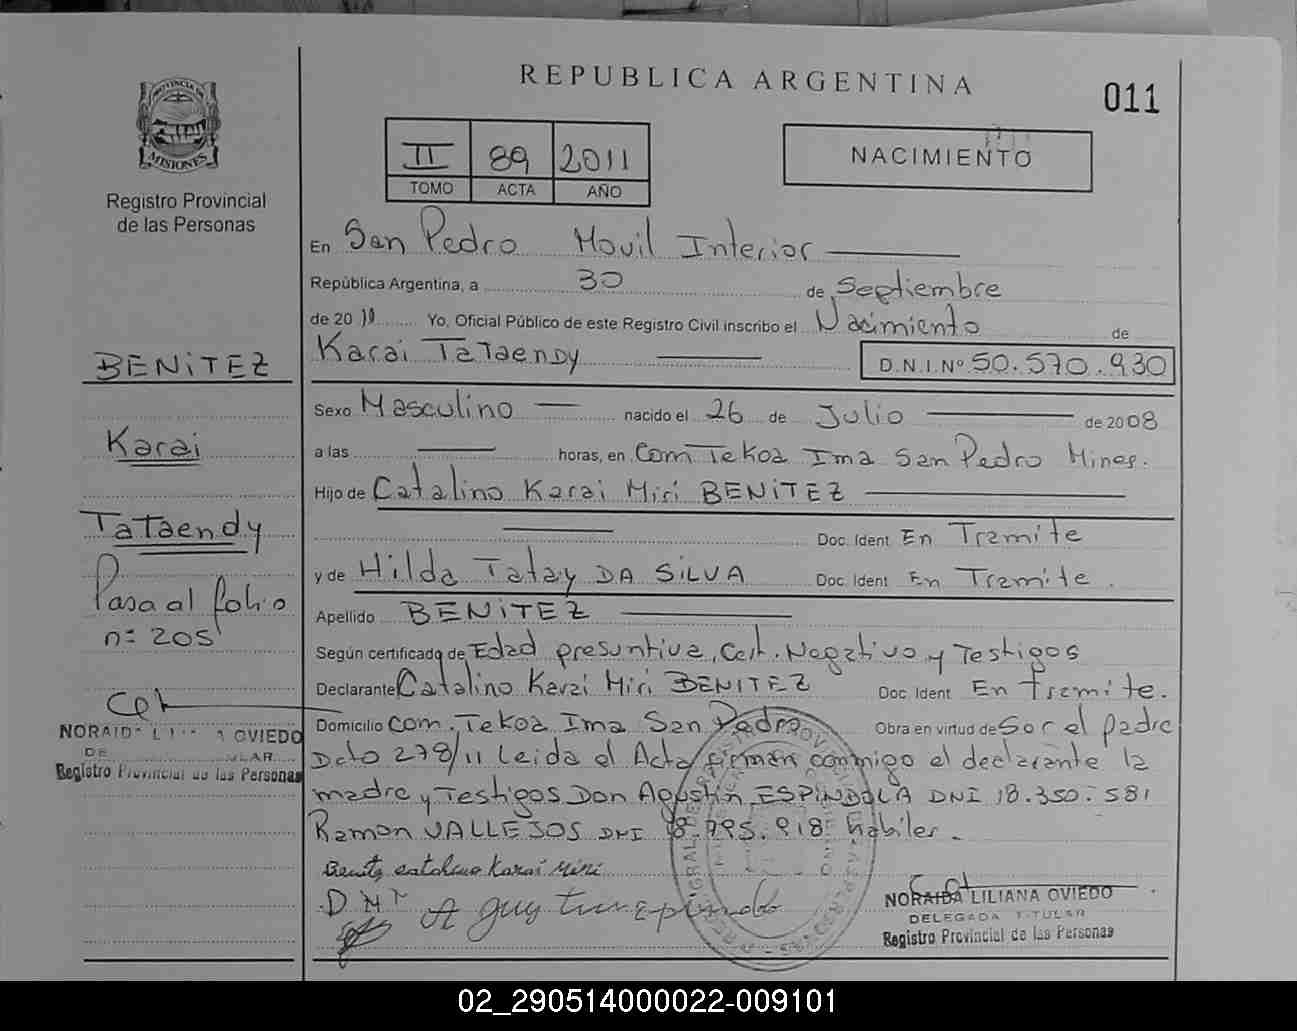 REPUBLICA ARGENTINA
011
PROVINCIA DE
MISIONES
Registro Provincial
de las Personas
II 89 2011
TOMO ACTA AÑO
NACIMIENTO
En San Pedro Movil Interior
República Argentina, a 30 de Septiembre
de 20 11 Yo, Oficial Público de este Registro Civil inscribo el Nacimiento de
Karai Tataendy D.N.I.Nº 50.570.930
Sexo Masculino nacido el 26 de Julio de 2008
a las horas, en Com Tekoa Ima San Pedro Mnes.
Hijo de Catalino Karai Miri BENITEZ
Doc. Ident En Tramite
y de Hilda Tatay DA SILVA Doc. Ident En Tramite.
Apellido BENITEZ
Según certificado de Edad presuntiva, Cert. Negativo y Testigos
Declarante Catalino Karai Miri BENITEZ Doc Ident En Tramite.
Domicilio Com. Tekoa Ima San Pedro Obra en virtud de Sor el padre
Dcto 278/11 Leida el Acta firman conmigo el declarante la
madre y Testigos Don Agustin ESPINDOLA DNI 18.350.581
Ramon VALLEJOS DNI 18.795.918 habiles.
Benitez catalino Karai Miri
NORAIDA LILIANA OVIEDO
DELEGADA TITULAR
Registro Provincial de las Personas
BENITEZ
Karai
Tataendy
Pasa al folio
n= 205
NORAIDA LILIANA OVIEDO
Registro Provincial de las Personas
02_290514000022-009101